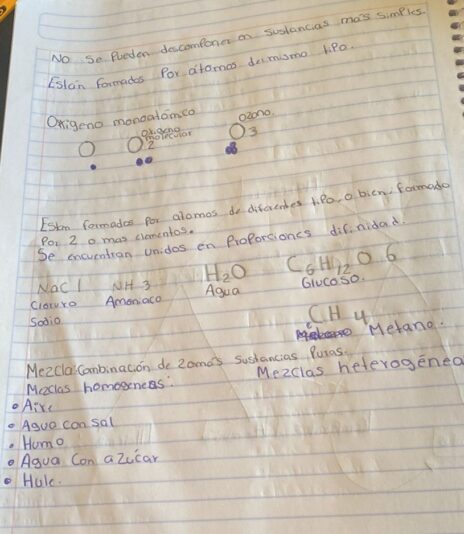 No se Pueden descomponer en sustancias más simples.
Están formados Por átomos del mismo tipo.
Oxígeno monoatómico
O
Oxigeno molecular
O2
Ozono
O3
Están formados Por atomos de diferentes tipo, o bien, formado
Por 2 o mas elementos.
Se encuentran unidos en Proporciones difinidad.
NaCl NH3 H2O C6H12O6
Cloruro Sodio
Amoniaco
Agua
Glucosa.
CH4
Metano.
Mezcla: Conbinación de 2omás sustancias Puras.
Mezclas homogeneas: Mezclas heterogénea
• Aire
• Agua con sal
• Humo
• Agua Con azúcar
• Hule.